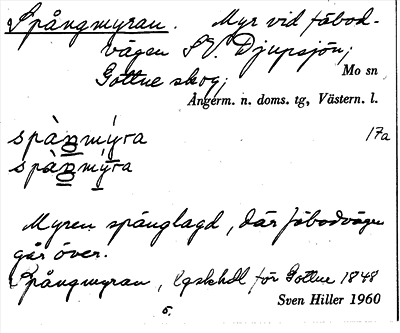 Spångmyran. Myr vid fäbod-
vägen SV. Djupsjön;
Gottne skog;
Mo sn
Ångerm. n. doms. tg, Västern. l.
spàŋmy̌ra 17a
spàŋmy̌ra
Myren spånglagd, där fäbodvägen
går över.
Spångmyran, för Gottne 1848
Sven Hiller 1960
5.